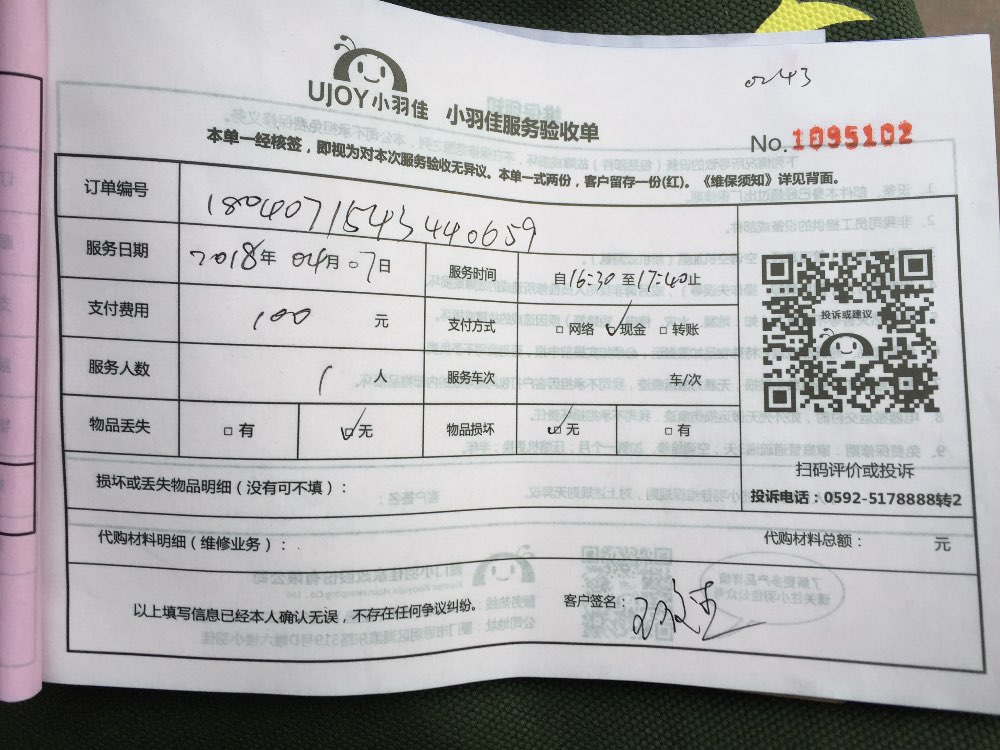 0243
UJOY小羽佳 小羽佳服务验收单
No.1095102
本单一经核签，即视为对本次服务验收无异议。本单一式两份，客户留存一份(红)。《维保须知》详见背面。
订单编号 180407154344 0659
服务日期 2018年 04月 07日 服务时间 自16:30 至17:40止
支付费用 100 元 支付方式 □ 网络 ☑ 现金 □ 转账
服务人数 1 人 服务车次 车/次
物品丢失 □ 有 ☑ 无 物品损坏 ☑ 无 □ 有
投诉或建议
扫码评价或投诉
投诉电话：0592-5178888转2
损坏或丢失物品明细（没有可不填）：
代购材料明细（维修业务）： 代购材料总额： 元
以上填写信息已经本人确认无误，不存在任何争议纠纷。 客户签名：